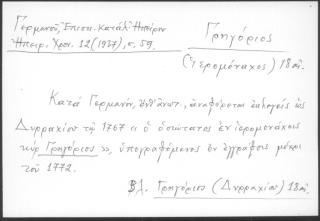 Γερμανού, Επισκ. Κατάλ. Ηπείρου
Ηπειρ. Χρον. 12 (1937), σ. 59.
Γρηγόριος
(Ἱερομόναχος) 18 αἰ.
Κατὰ Γερμανόν, ἔνθ' ἀνωτ., ἀναφέρεται ὡς
Δυρραχίου τῷ 1767 « ὁ ὁσιώτατος ἐν ἱερομονάχοις
κὺρ Γρηγόριος », ὑπογραφόμενος ἐν ἐγγράφοις μέχρι
τοῦ 1772.
Βλ. Γρηγόριος (Δυρραχίου) 18 αἰ.